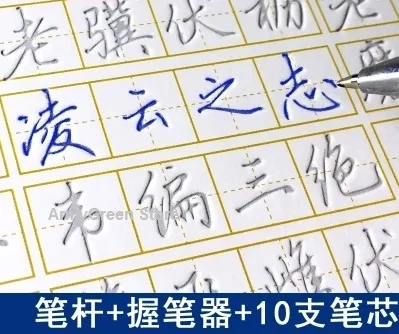 老骥伏枥 老
凌云之志
韦编三绝
雌伏
笔杆+握笔器+10支笔芯